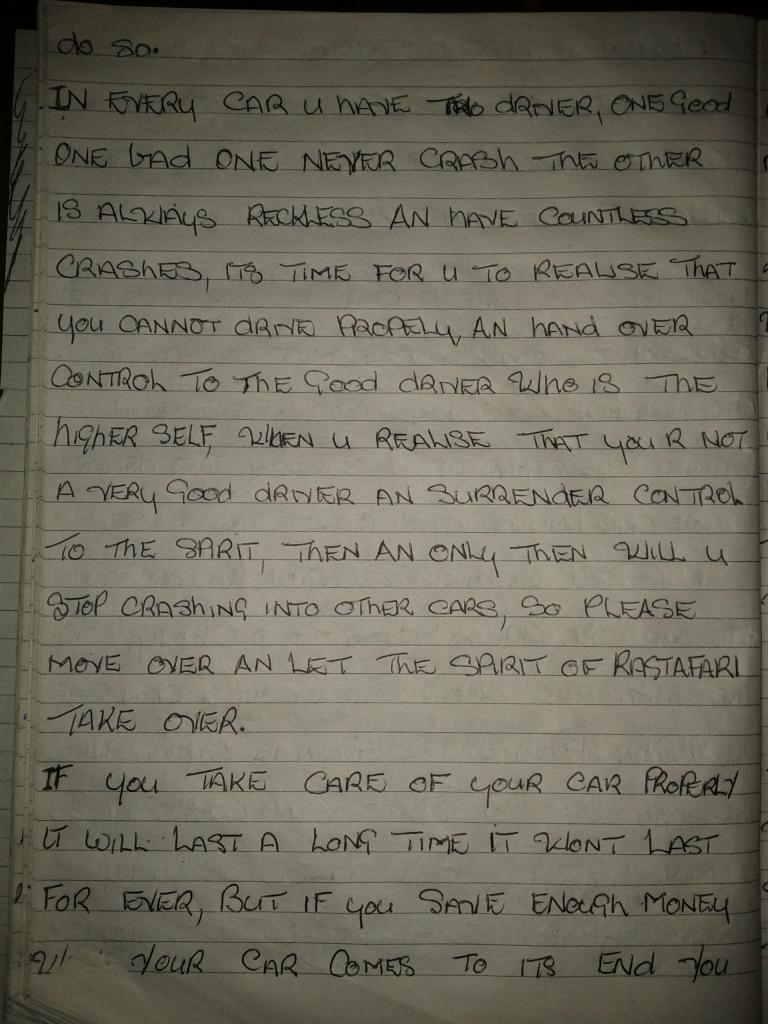 do so.
IN EVERY CAR U HAVE TWO DRIVER, ONE Good
ONE bad ONE NEVER CRASH THE OTHER
IS ALWAYS RECKLESS AN HAVE COUNTLESS
CRASHES, ITS TIME FOR U TO REALISE THAT
YOU CANNOT DRIVE PROPELY, AN HAND OVER
CONTROL TO THE Good DRIVER WHO IS THE
HIGHER SELF, WHEN U REALISE THAT YOU R NOT
A VERY Good DRIVER AN SURRENDER CONTROL
TO THE SPIRIT, THEN AN ONLY THEN WILL U
STOP CRASHING INTO OTHER CARS, SO PLEASE
MOVE OVER AN LET THE SPIRIT OF RASTAFARI
TAKE OVER.
IF YOU TAKE CARE OF YOUR CAR PROPERLY
IT WILL LAST A LONG TIME IT WONT LAST
FOR EVER, BUT IF YOU SAVE ENOUGH MONEY
YOUR CAR COMES TO ITS END YOU